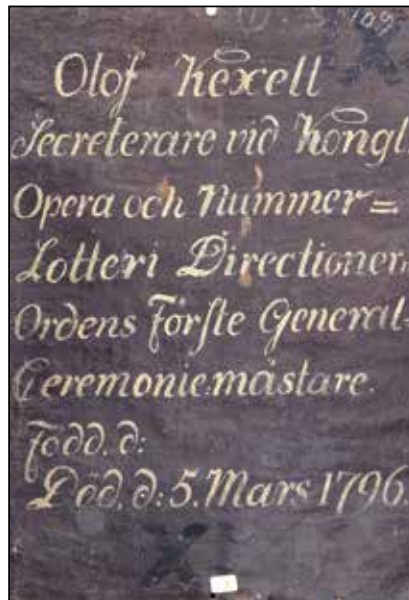 109
Olof Kexell
Secreterare vid Kongl.
Opera och Nummer=
Lotteri Directionen.
Ordens förste General-
Ceremonie:mästare.
Född. d:
Död. d: 5. Mars 1796.